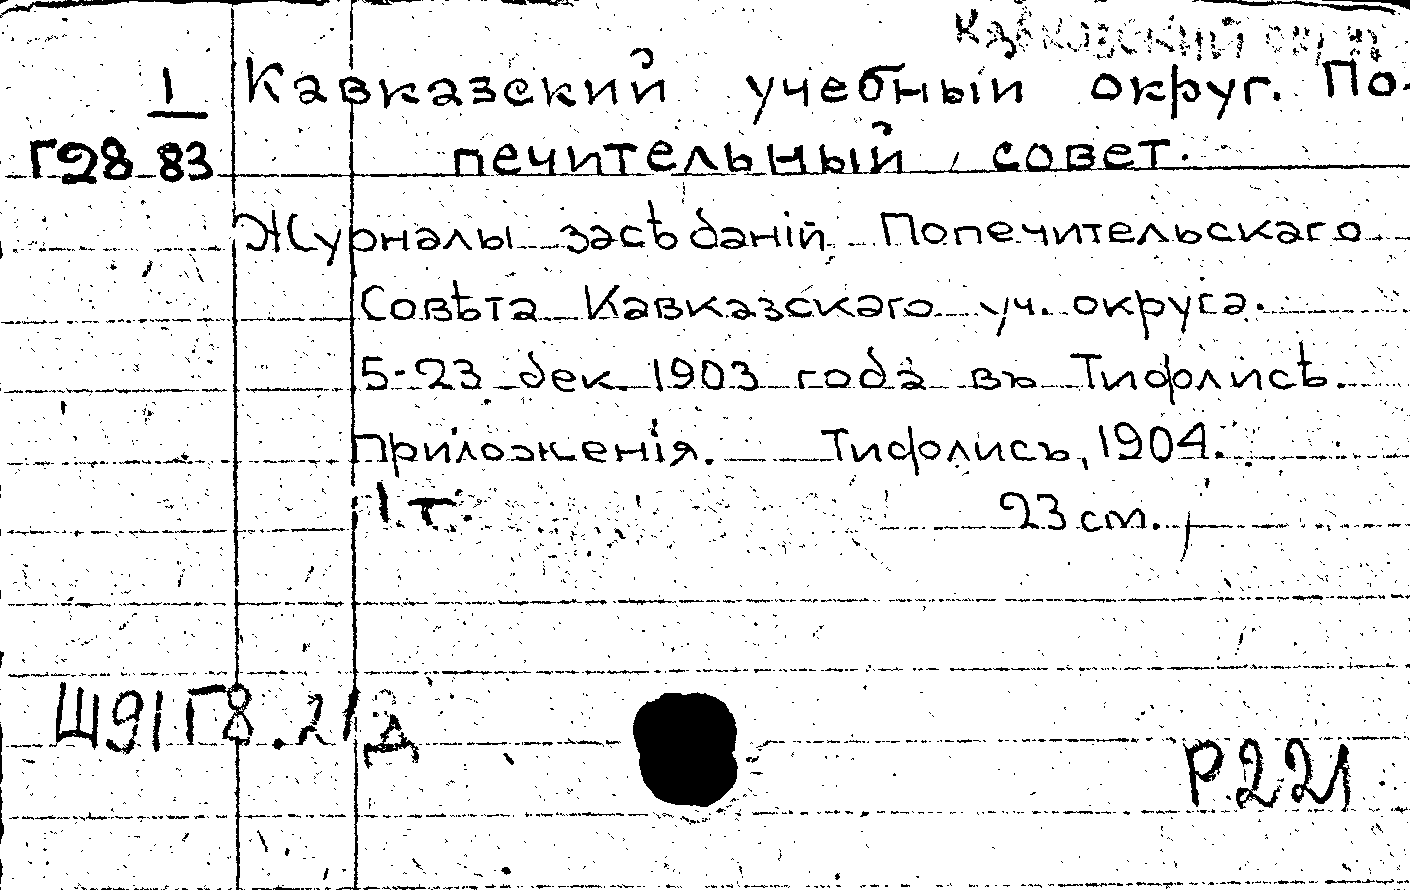 Кавказский округ
1
Кавказский учебный округ. По-
Г28 83
печительный совет.
Журналы засѣданій Попечительскаго
Совѣта Кавказскаго уч. округа.
5-23 дек. 1903 года въ Тифлисѣ.
Приложенія. Тифлисъ, 1904.
1 т. 23 cm.
Щ91Г8.21
Р221